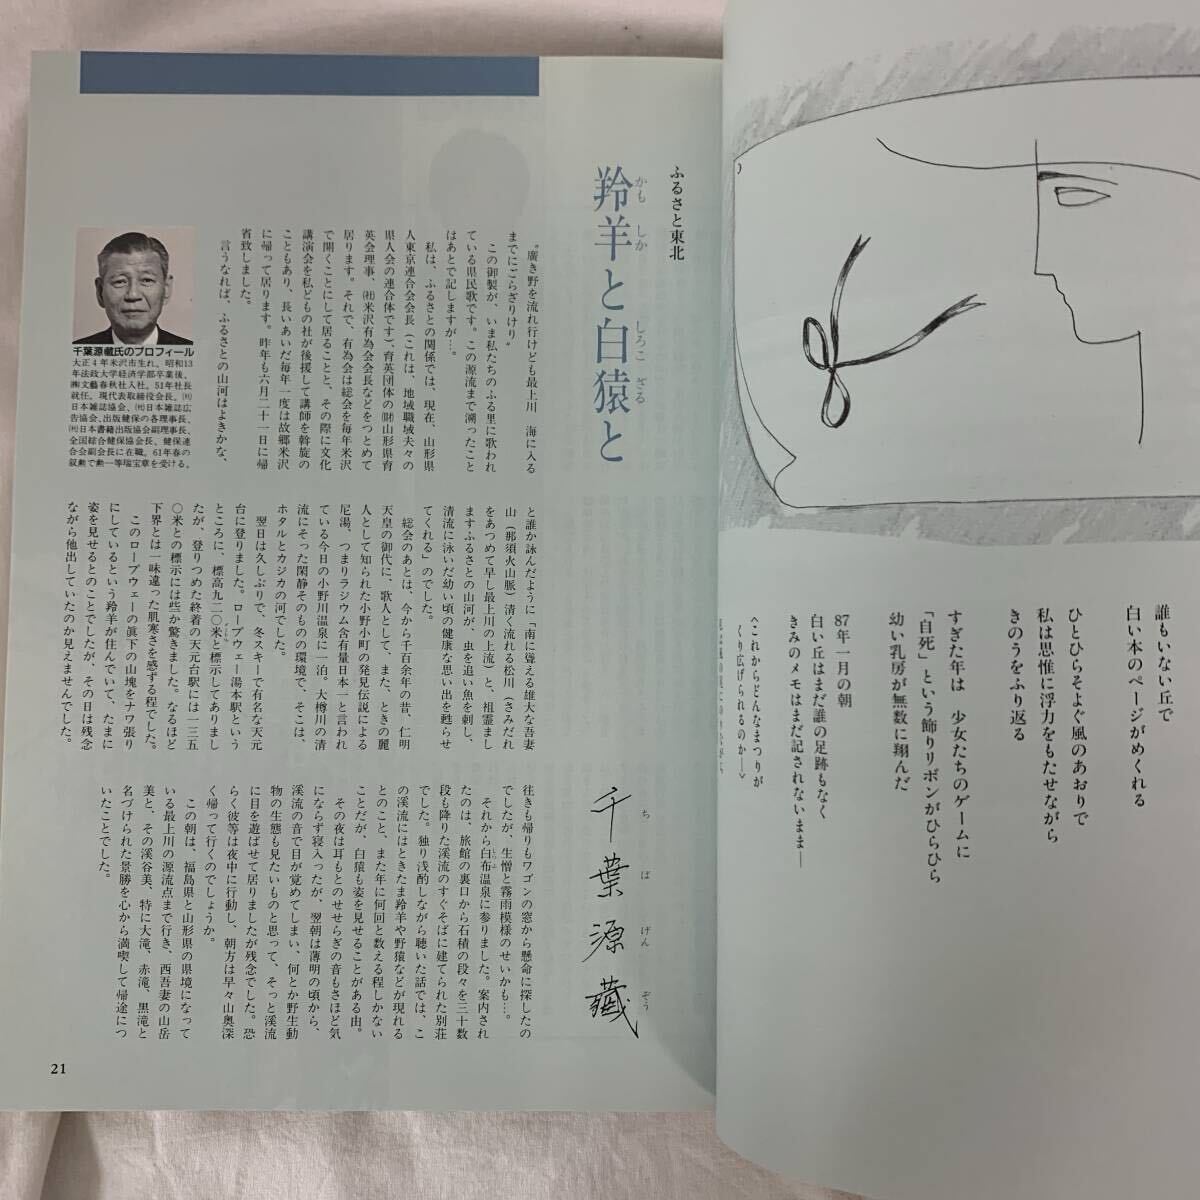 誰もいない丘で
白い本のページがめくれる
ひとひらそよぐ風のあおりで
私は思惟に浮力をもたせながら
きのうをふり返る
すぎた年は　少女たちのゲームに
「自死」という飾りリボンがひらひら
幼い乳房が無数に翔んだ
87年一月の朝
白い丘はまだ誰の足跡もなく
きみのメモはまだ記されないまま―
〈これからどんなまつりが
くり広げられるのか―〉
ふるさと東北
羚羊と白猿と
かも しか
しろこ ざる
千葉源蔵
ち ば げん ぞう
〝廣き野を流れ行けども最上川　海に入る
までにごらざりけり〟
この御製が、いま私たちのふる里に歌われ
ている県民歌です。この源流まで溯ったこと
はあとで記しますが…。
私は、ふるさとの関係では、現在、山形県
人東京連合会会長（これは、地域職域夫々の
県人会の連合体です）、育英団体の㈶山形県育
英会理事、㈳米沢有為会会長などをつとめて
居ります。それで、有為会は総会を毎年米沢
で開くことにして居ることと、その際に文化
講演会を私どもの社が後援して講師を斡旋の
こともあり、長いあいだ毎年一度は故郷米沢
に帰って居ります。昨年も六月二十一日に帰
省致しました。
言うなれば、ふるさとの山河はよきかな、
千葉源蔵氏のプロフィール
大正4年米沢市生れ。昭和13
年法政大学経済学部卒業後、
㈱文藝春秋社入社。51年社長
就任、現代表取締役会長。㈳
日本雑誌協会、㈳日本雑誌広
告協会、出版健保の各理事長、
㈳日本書籍出版協会副理事長、
全国総合健保協会長、健保連
合会副会長に在職。61年春の
叙勲で勲一等瑞宝章を受ける。
と誰か詠んだように「南に聳える雄大な吾妻
山（那須火山脈）清く流れる松川（さみだれ
をあつめて早し最上川の上流）と、祖霊まし
ますふるさとの山河が、虫を追い魚を刺し、
清流に泳いだ幼い頃の健康な思い出を甦らせ
てくれる」のでした。
総会のあとは、今から千百余年の昔、仁明
天皇の御代に、歌人として、また、ときの麗
人として知られた小野小町の発見伝説による
尼湯、つまりラジウム含有量日本一と言われ
ている今日の小野川温泉に一泊。大樽川の清
流にそった閑静そのものの環境で、そこは、
ホタルとカジカの河でした。
翌日は久しぶりで、冬スキーで有名な天元
台に登りました。ロープウェー湯本駅という
ところに、標高九二〇米と標示してありまし
たが、登りつめた終着の天元台駅には一三五
〇米との標示には些か驚きました。なるほど
下界とは一味違った肌寒さを感ずる程でした。
このロープウェーの眞下の山塊をナワ張り
にしているという羚羊が住んでいて、たまに
姿を見せるとのことでしたが、その日は残念
ながら他出していたのか見えませんでした。
往きも帰りもワゴンの窓から懸命に探したの
でしたが、生憎と霧雨模様のせいかも…。
それから白布温泉に参りました。案内され
たのは、旅館の裏口から石積の段々を三十数
段も降りた渓流のすぐそばに建てられた別荘
でした。独り浅酌しながら聴いた話では、こ
の渓流にはときたま羚羊や野猿などが現れる
とのこと、また年に何回と数える程しかない
ことだが、白猿も姿を見せることがある由。
その夜は耳もとのせせらぎの音もさほど気
にならず寝入ったが、翌朝は薄明の頃から、
渓流の音で目が覚めてしまい、何とか野生動
物の生態も見たいものと思って、そっと渓流
に目を遊ばせて居りましたが残念でした。恐
らく彼等は夜中に行動し、朝方は早々山奥深
く帰って行くのでしょうか。
この朝は、福島県と山形県の県境になって
いる最上川の源流点まで行き、西吾妻の山岳
美と、その渓谷美、特に大滝、赤滝、黒滝と
名づけられた景勝を心から満喫して帰途につ
いたことでした。
21